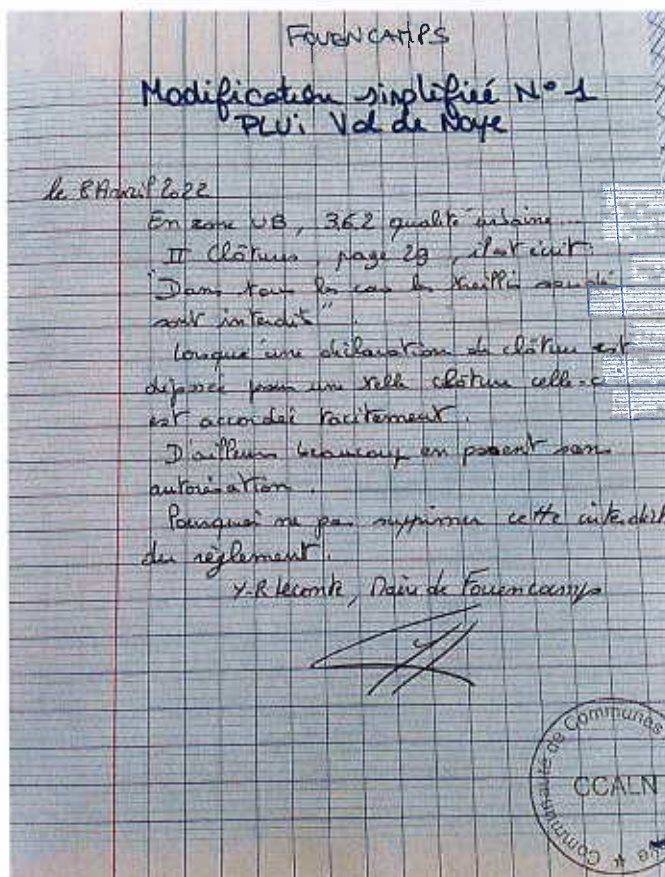 FOUENCAMPS
Modification simplifié N° 1
PLUi Val de Noye
le 8 Avril 2022
En zone UB, 3.6.2 qualité urbaine...
II Clôtures, page 29, il est écrit:
"Dans tous les cas les treillis soudés
sont interdits".
Lorsque une déclaration de clôture est
déposée pour une telle clôture celle-ci
est accordée tacitement.
D'ailleurs beaucoup en posent sans
autorisation.
Pourquoi ne pas supprimer cette interdicti
du règlement.
Y-R Leconte, Maire de Fouencamps
Communauté de Communes
CCALN